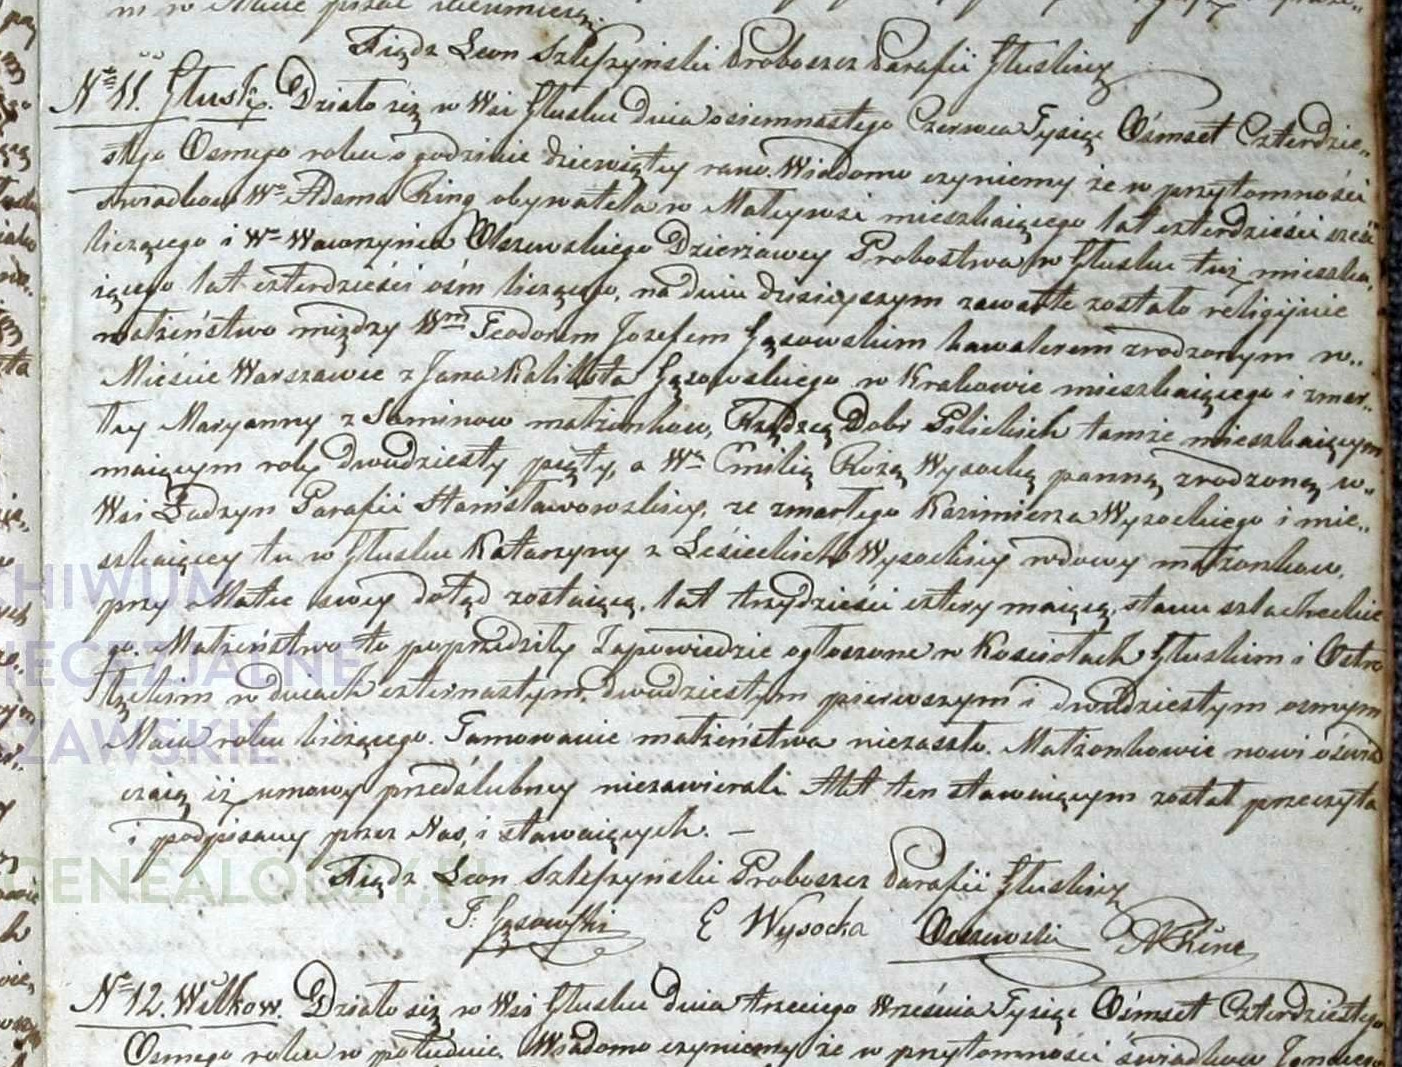 Xiądz Leon Szlefrzyński Proboszcz Parafii Głuskiey
Nro 11. Głusk. Działo się w Wsi Głusku dnia osiemnastego Czerwca Tysiąc Ośmset Czterdzie„
stego Osmego roku o godzinie dziewiątey rano. Wiadomo czyniemy że w przytomności
świadków Wo Adama King obywatela w Małeywsi mieszkaiącego lat czterdzieści sześć
liczącego i Wo Wawrzyńca Olszewskiego Dzierżawcy Probostwa w Głusku tuż mieszka„
iącego lat czterdzieści ośm liczącego, na dniu dzisieyszym zawarte zostało religijnie
małżeństwo między Wm Teodorem Jozefem Gąsowskim kawalerem zrodzonym w„
Mieście Warszawie z Jana Kalixta Gąsowskiego w Krakowie mieszkaiącego i zmar„
łey Maryanny z małżonkow, Rządzcą Dobr Pilickich tamże mieszkaiącym
maiącym rok dwudziesty piąty, a Wą Emilią Rozą Wysocką panną zrodzoną w„
Wsi Parafii Stanisławowskiey, ze zmarłego Kazimierza Wysockiego i mie„
szkaiącey tu w Głusku Katarzyny z Lesieckich Wysockiey wdowy małżonkow,
przy Matce swey dotąd zostaiącą, lat trzydzieści cztery maiącą, stanu szlacheckie
go. Małżeństwo to poprzedziły Zapowiedzie ogłoszone w Kosciołach Głuskim i Ostro
łęckim w dniach czternastym, dwudziestym pierwszym i dwudziestym osmym
Maia roku bieżącego. Tamowanie małżeństwa niezaszło. Małżonkowie nowi oświad
czaią iż umowy przedślubney niezawierali Akt ten stawaiącym został przeczyta
i podpisany przez Nas, i stawaiących. —
Xiądz Leon Szlefrzyński Proboszcz Parafii Głuskiey
T. Gąsowski E Wysocka Olszewski A King
Nro 12. Wilkow. Działo się w Wsi Głusku dnia trzeciego Września Tysiąc Ośmset Czterdziestego
Osmego roku w południe. Wiadomo czyniemy że w przytomności świadkow Ignacego
CHIWUM
DIECEZJALNE
ZAWSKIE
GENEALODZY.PL